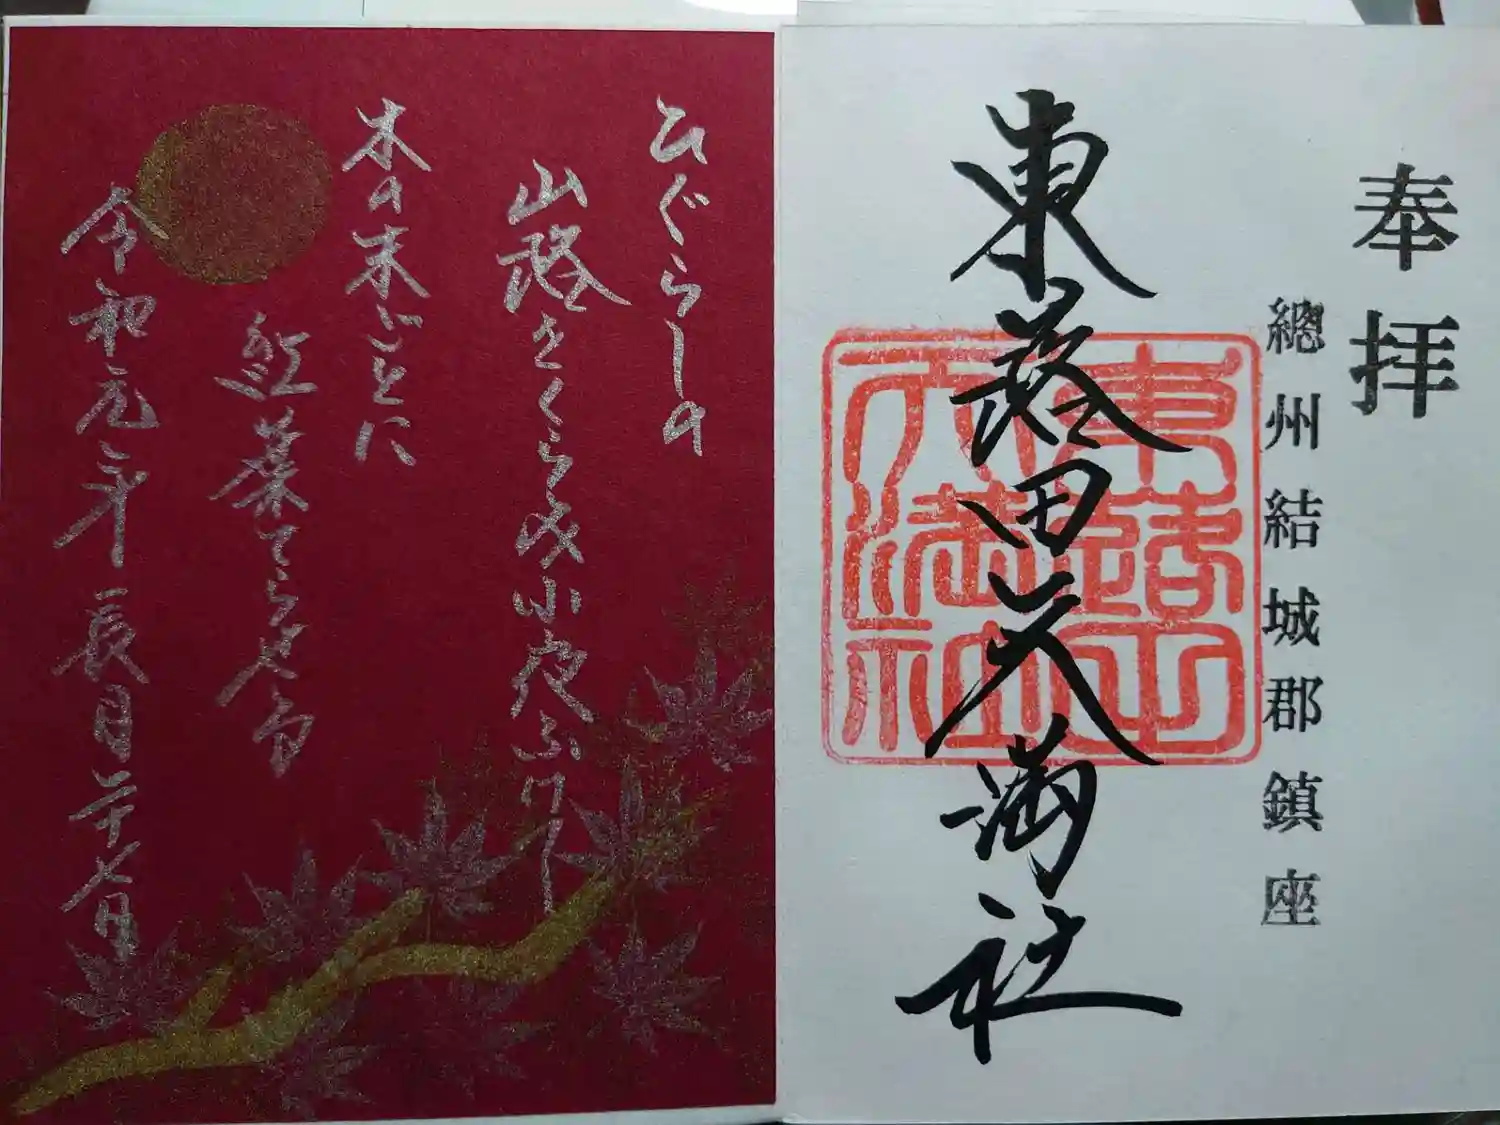 奉拝
總州結城郡鎮座
東蕗田天満社
東蕗田天満社
ひぐらしの
山路をくらみ小夜ふけ
木の末ごとに
紅葉てらせる
令和元年長月二十七日